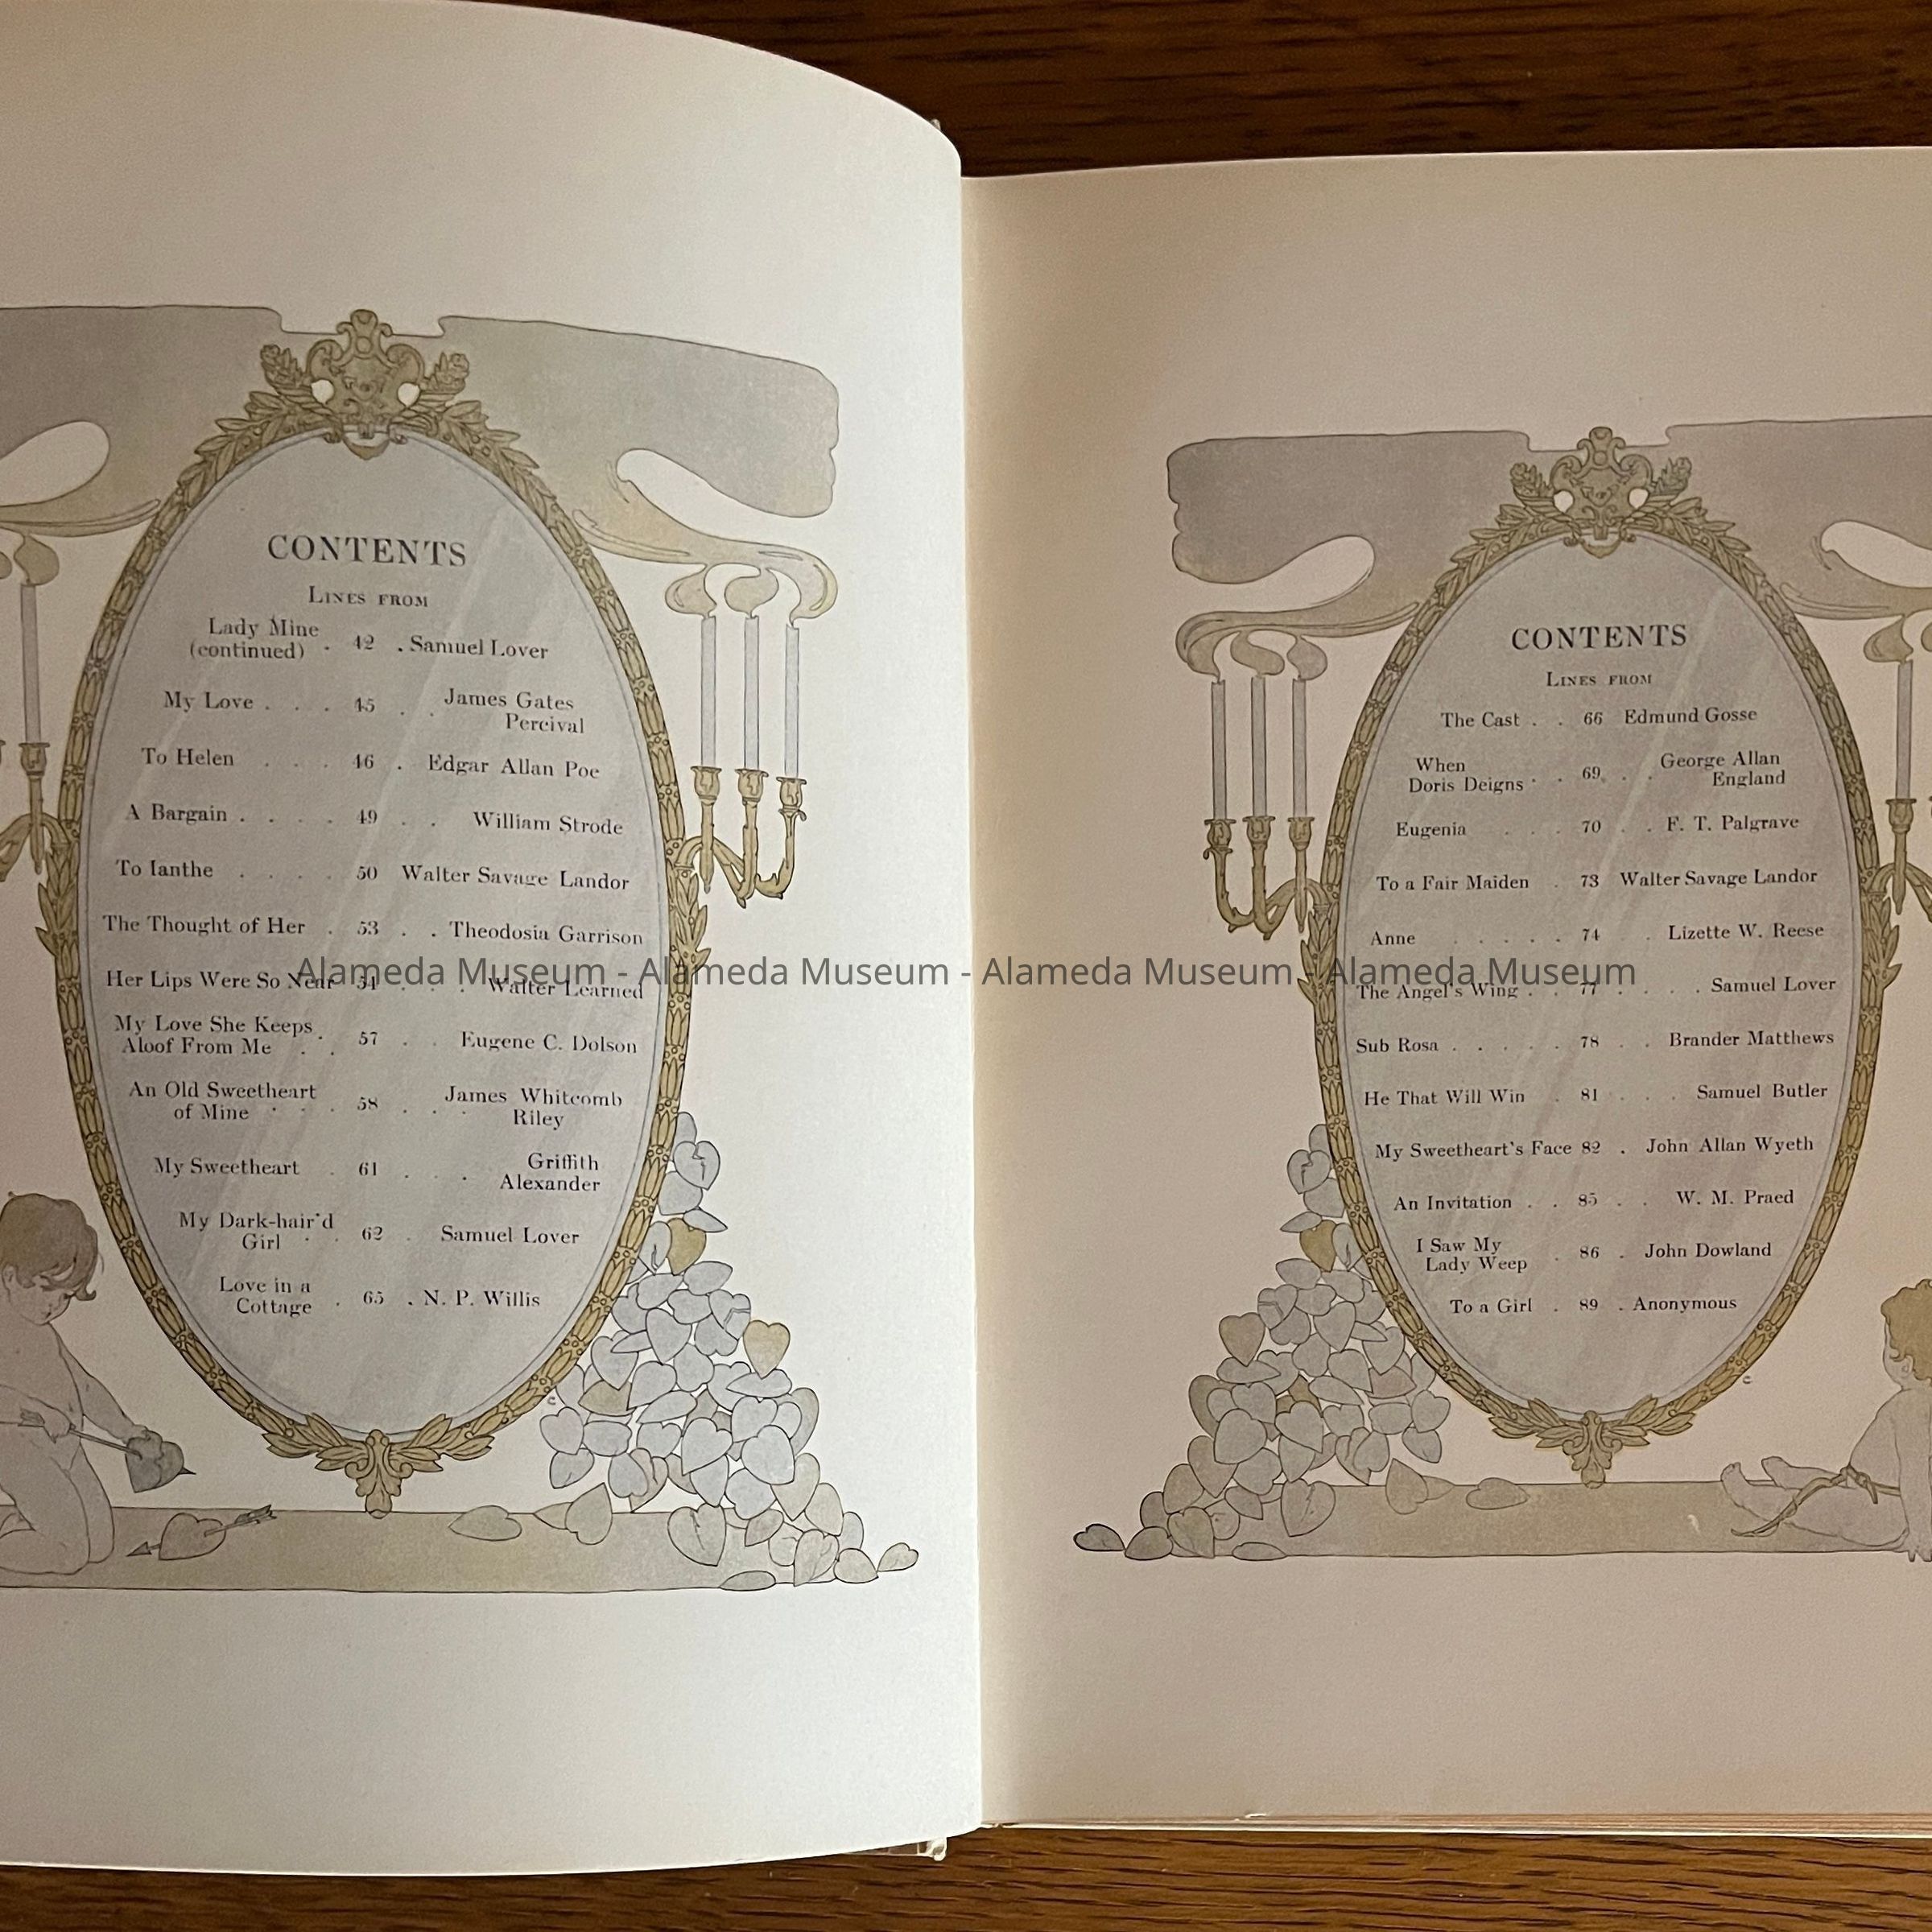 CONTENTS
LINES FROM
Lady Mine
(continued) . 42 . Samuel Lover
My Love . . . 45 . . James Gates
Percival
To Helen . . . 46 . Edgar Allan Poe
A Bargain . . . . 49 . . William Strode
To Ianthe . . . . 50 Walter Savage Landor
The Thought of Her . 53 . . Theodosia Garrison
Her Lips Were So Near 54 . . . Walter Learned
My Love She Keeps
Aloof From Me . . 57 . . Eugene C. Dolson
An Old Sweetheart
of Mine . . . 58 . . James Whitcomb
Riley
My Sweetheart . 61 . . Griffith
Alexander
My Dark-hair'd
Girl . . 62 . Samuel Lover
Love in a
Cottage . 65 . N. P. Willis
CONTENTS
LINES FROM
The Cast . . 66 Edmund Gosse
When
Doris Deigns . . 69 . . George Allan
England
Eugenia . . . 70 . . F. T. Palgrave
To a Fair Maiden . 73 Walter Savage Landor
Anne . . . . . 74 . . Lizette W. Reese
The Angel's Wing . . 77 . . . . Samuel Lover
Sub Rosa . . . . . 78 . . Brander Matthews
He That Will Win . 81 . . . Samuel Butler
My Sweetheart's Face 82 . John Allan Wyeth
An Invitation . . 85 . . W. M. Praed
I Saw My
Lady Weep . 86 . John Dowland
To a Girl . 89 . Anonymous
Alameda Museum - Alameda Museum - Alameda Museum - Alameda Museum